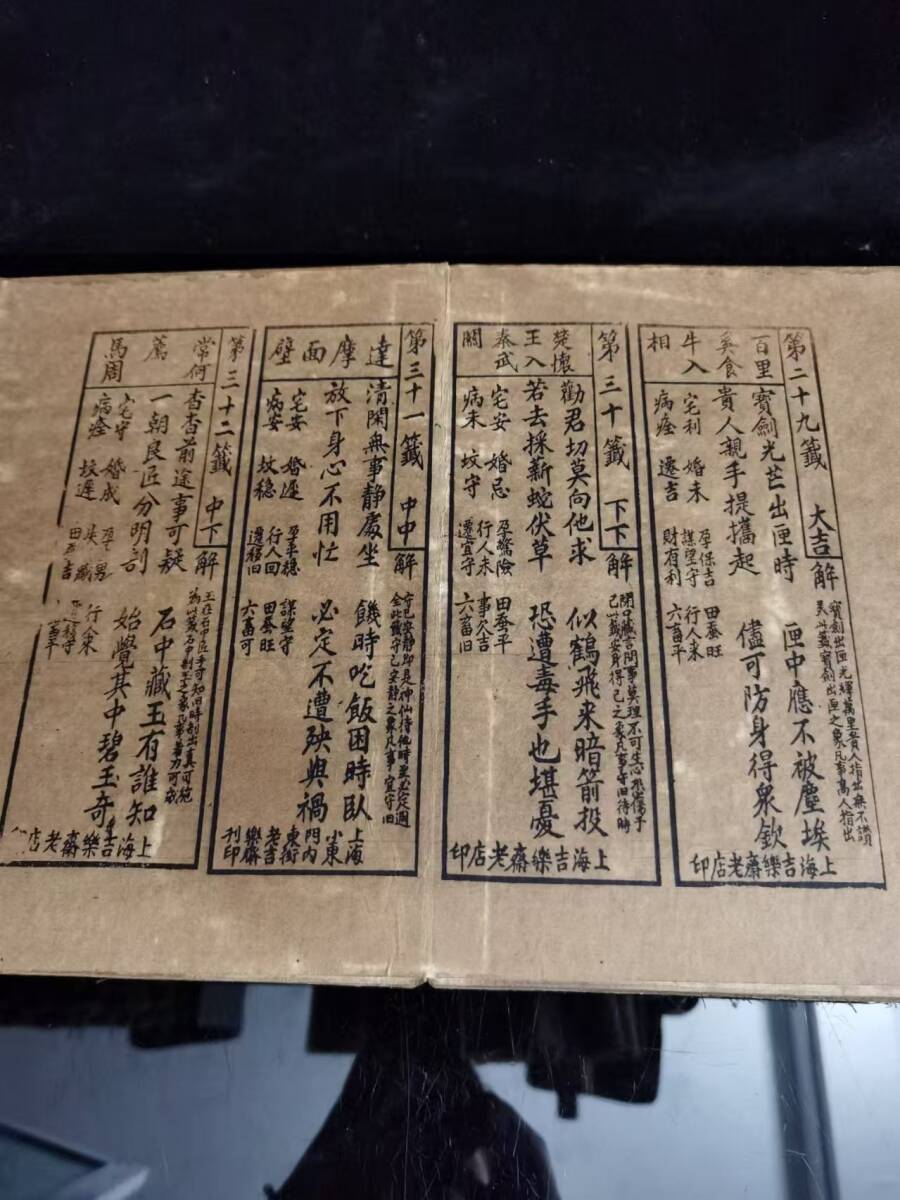 第二十九籤 大吉
解
寳劍出匣光輝萬里貴人指出無不讃
此籤寳劍出匣之象凡事髙人指出
百里
奚食
牛入
相
寳劍光芒出匣時
匣中應不被塵埃
貴人親手提攜起
儘可防身得衆欽
宅利 婚未 孕保吉 田蚕旺
謀望守 行人来
病痊 遷吉 財有利 六畜平
上海吉樂齋老店印
第三十籤 下下
解
閉口藏舌閒事莫理不可生心恐傷手
此籤安身得己之象凡事守旧待時
楚懷
王入
秦武
關
勸君切莫向他求
似鶴飛来暗箭投
若去採新蛇伏草
恐遭毒手也堪憂
宅安 婚忌 孕驚險 田蚕平
行人未 事欠吉
病未 坟守 遷宜守 六畜旧
上海吉樂齋老店印
第三十一籤 中中
解
守己安静即是神仙待他時至必定遇
此籤守己安静之象凡事宜守旧
達摩面壁
清閑無事静處坐
饑時吃飯困時臥
放下身心不用忙
必定不遭殃與禍
宅安 婚遲 孕平穏 謀望守
行人回 田蚕旺
病安 坟穏 遷移旧 六畜可
上海
小東
門內
東街
老吉
樂齋
刊印
第三十二籤 中下
解
常何
薦
馬周
杳杳前途事可疑
石中藏玉有誰知
一朝良匠分明剖
始覺其中碧玉奇
宅守 婚成 孕 男 行人来
病痊 坟遲
上海吉樂齋老店